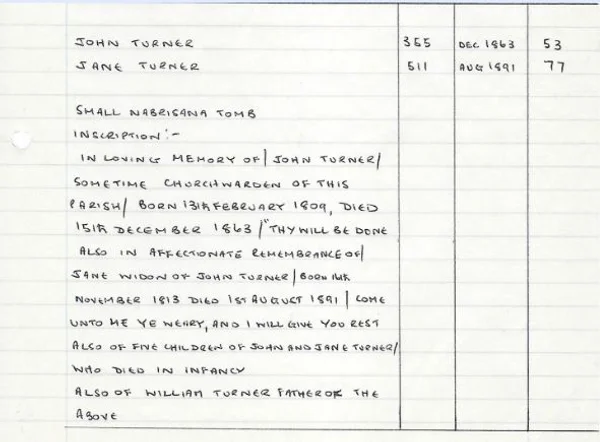 JOHN TURNER 355 DEC 1863 53
JANE TURNER 511 AUG 1891 77
SMALL NABRISANA TOMB
INSCRIPTION:-
IN LOVING MEMORY OF/ JOHN TURNER/
SOMETIME CHURCHWARDEN OF THIS
PARISH/ BORN 13th FEBRUARY 1809, DIED
15th DECEMBER 1863 /"THY WILL BE DONE
ALSO IN AFFECTIONATE REMEMBRANCE OF/
JANE WIDON OF JOHN TURNER/ BORN
NOVEMBER 1813 DIED 1ST AUGUST 1891 / COME
UNTO ME YE WEARY, AND I WILL GIVE YOU REST
ALSO OF FIVE CHILDREN OF JOHN AND JANE TURNER/
WHO DIED IN INFANCY
ALSO OF WILLIAM TURNER FATHER OF THE
ABOVE